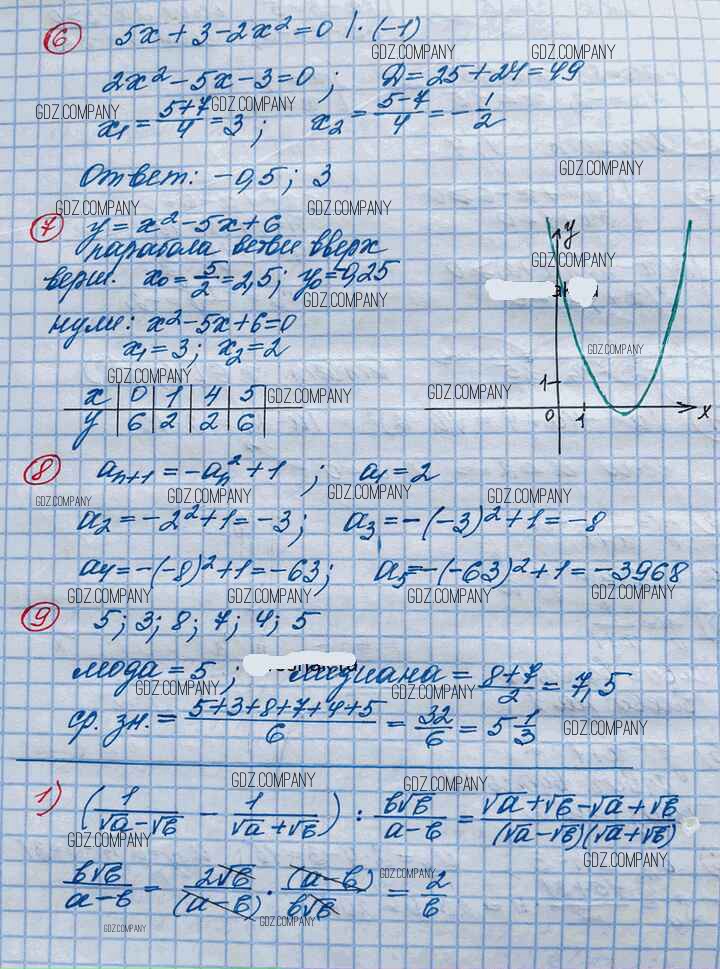 6 5x + 3 - 2x² = 0 | · (-1)
GDZ.COMPANY GDZ.COMPANY
2x² - 5x - 3 = 0 ; D = 25 + 24 = 49
GDZ.COMPANY GDZ.COMPANY
x₁ = (5+7)/4 = 3 ; x₂ = (5-7)/4 = -1/2
GDZ.COMPANY
Ответ: -0,5 ; 3
GDZ.COMPANY GDZ.COMPANY
7 y = x² - 5x + 6
y
парабола ветви вверх
GDZ.COMPANY
верш. x₀ = 5/2 = 2,5 ; y₀ = -0,25
GDZ.COMPANY
нули: x² - 5x + 6 = 0
x₁ = 3 ; x₂ = 2
GDZ.COMPANY
GDZ.COMPANY GDZ.COMPANY GDZ.COMPANY
x | 0 | 1 | 4 | 5
y | 6 | 2 | 2 | 6
1
0 1 x
8 aₙ₊₁ = -aₙ² + 1 ; a₁ = 2
GDZ.COMPANY GDZ.COMPANY GDZ.COMPANY GDZ.COMPANY
a₂ = -2² + 1 = -3 ; a₃ = -(-3)² + 1 = -8
a₄ = -(-8)² + 1 = -63 ; a₅ = -(-63)² + 1 = -3968
GDZ.COMPANY GDZ.COMPANY GDZ.COMPANY GDZ.COMPANY
9 5 ; 3 ; 8 ; 7 ; 4 ; 5
мода = 5 ; медиана = (8+7)/2 = 7,5
GDZ.COMPANY GDZ.COMPANY
ср. зн. = (5+3+8+7+4+5)/6 = 32/6 = 5 1/3
GDZ.COMPANY
GDZ.COMPANY GDZ.COMPANY
1) (1/(√a-√b) - 1/(√a+√b)) : b√b/(a-b) = (√a+√b-√a+√b)/((√a-√b)(√a+√b)) :
GDZ.COMPANY GDZ.COMPANY
b√b/(a-b) = 2√b/(a-b) · (a-b)/b√b = 2/b
GDZ.COMPANY
GDZ.COMPANY GDZ.COMPANY